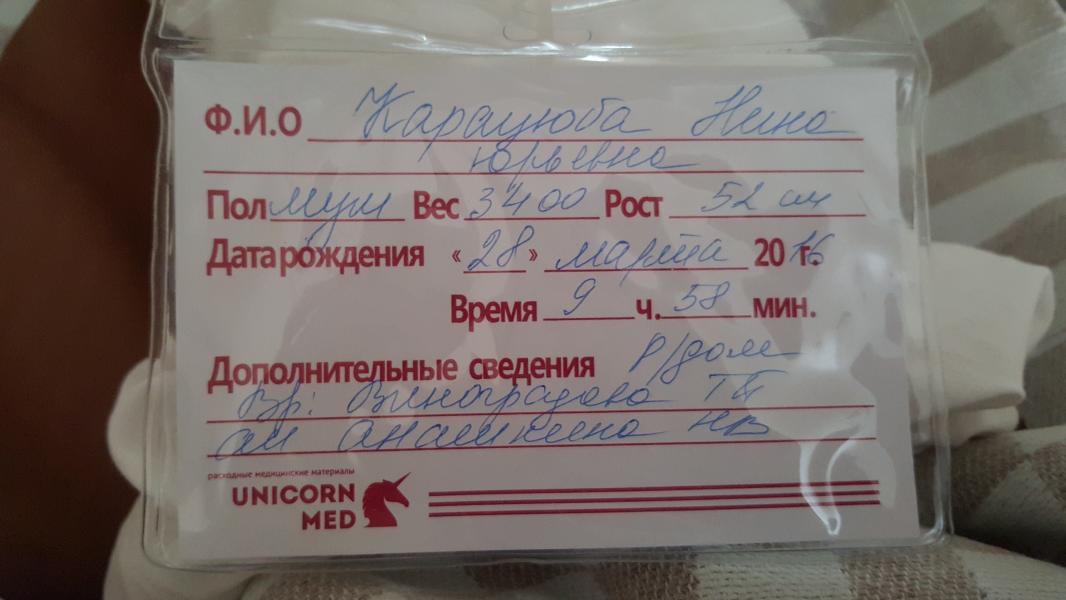 Ф.И.О Карацюба Нина
Юрьевна
Пол муж Вес 3400 Рост 52 см
Дата рождения «28» марта 2016 г.
Время 9 ч. 58 мин.
Дополнительные сведения р/дом
Вр: Виноградова ТП
ак Анашкина НВ
расходные медицинские материалы
UNICORN
MED